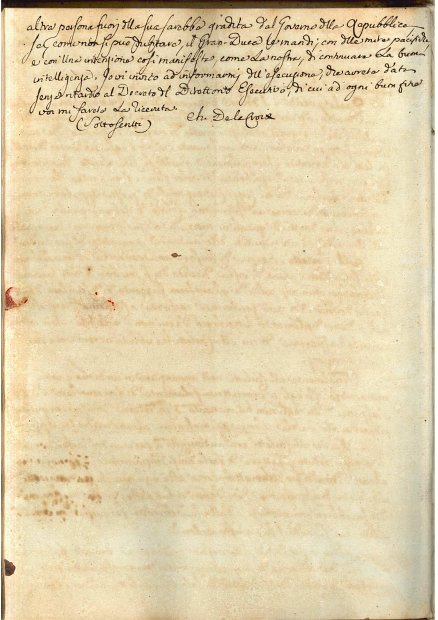 altra persona fuori della sua sarebbe gradita dal Governo della Repubblica
Se, come non si può dubitare, il Gran-Duca la mandi, con delle mire pacifiche
e con una intenzione così manifesta, come la nostra, di continuare la buona
intelligenza. Io vi invito ad informarmi, dell'esecuzione, che avrete data
senza ritardo al Decreto del Direttorio Esecutivo, di cui ad ogni buon fine
voi mi farete la ricevuta.
(Sottoscritti) Ch: De la Croix